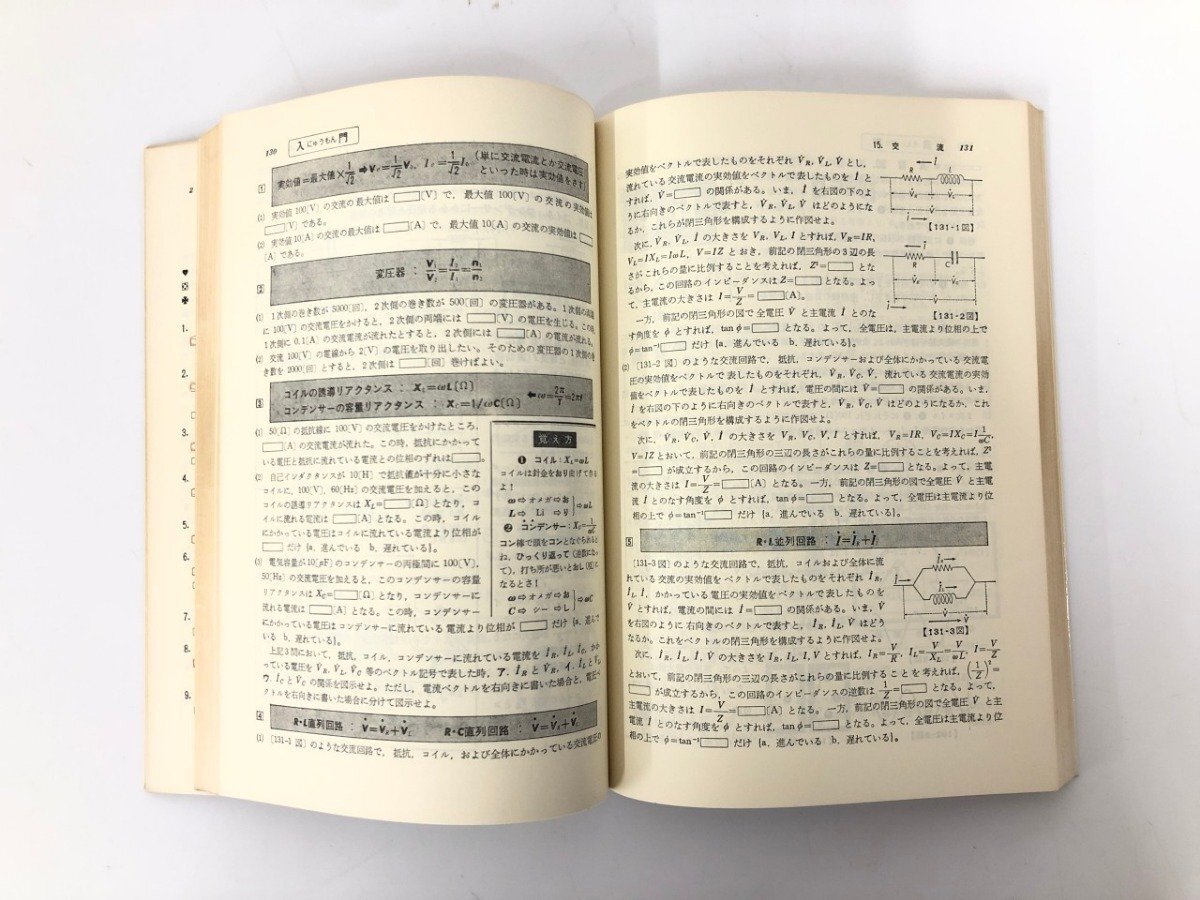 130
入にゅうもん門
1 実効値=最大値×1/√2 ➡Ve=1/√2 V0, Ie=1/√2 I0 (単に交流電流とか交流電圧
といった時は実効値をさす)
(1) 実効値100[V]の交流の最大値は□[V]で,最大値100[V]の交流の実効値は
□[V]である。
(2) 実効値10[A]の交流の最大値は□[A]で,最大値10[A]の交流の実効値は□
[A]である。
2 変圧器: V1/V2=I2/I1=n1/n2
(1) 1次側の巻き数が5000[回],2次側の巻き数が500[回]の変圧器がある。1次側の両端
に100[V]の交流電圧をかけると,2次側の両端には□[V]の電圧を生じる。この時,
1次側に0.1[A]の交流電流が流れたとすると,2次側には□[A]の電流が流れる。
(2) 交流100[V]の電線から2[V]の電圧を取り出したい。そのための変圧器の1次側の巻
き数を2000[回]とすると,2次側は□[回]巻けばよい。
3 コイルの誘導リアクタンス: XL=ωL[Ω]
コンデンサーの容量リアクタンス: XC=1/ωC[Ω] ⬅ω=2π/T=2πf
(1) 50[Ω]の抵抗線に100[V]の交流電圧をかけたところ,
□[A]の交流電流が流れた。この時,抵抗にかかって
いる電圧と抵抗に流れている電流との位相のずれは□。
(2) 自己インダクタンスが10[H]で抵抗値が十分に小さな
コイルに,100[V],60[Hz]の交流電圧を加えると,この
コイルの誘導リアクタンスはXL=□[Ω]となり,コ
イルに流れる電流は□[A]となる。この時,コイル
にかかっている電圧はコイルに流れている電流より位相が
□だけ{a. 進んでいる b. 遅れている}。
(3) 電気容量が10[μF]のコンデンサーの両極間に100[V],
50[Hz]の交流電圧を加えると,このコンデンサーの容量
リアクタンスはXC=□[Ω]となり,コンデンサーに
流れる電流は□[A]となる。この時,コンデンサー
にかかっている電圧はコンデンサーに流れている電流より位相が□だけ{a. 進んで
いる b. 遅れている}。
覚え方
❶ コイル:XL=ωL
コイルは針金をおり曲げて作る
よ!
ω⇨オメガ⇨お
L⇨ Li ⇨り }⇨ωL
❷ コンデンサー:XC=1/ωC
コン棒で頭をコンとなぐられると
ね,ひっくり返って(逆数になっ
て),打ち所が悪いとおし(唖)に
なるとさ!
ω⇨オメガ⇨お
C⇨シー⇨し }⇨ωC
上記3問において,抵抗,コイル,コンデンサーに流れている電流をİR, İL, İC, かか
っている電圧をV̇R, V̇L, V̇C等のベクトル記号で表した時,ア. İRとV̇R, イ. İLとV̇L,
ウ. İCとV̇Cの関係を図示せよ。ただし,電流ベクトルを右向きに書いた場合と,電圧ベ
クトルを右向きに書いた場合に分けて図示せよ。
4 R・L直列回路: V̇=V̇R+V̇L R・C直列回路: V̇=V̇R+V̇C
(1) [131-1図]のような交流回路で,抵抗,コイル,および全体にかかっている交流電圧の
2
1.
2.
3.
4.
5.
6.
7.
8.
9.
15. 交 流 131
実効値をベクトルで表したものをそれぞれV̇R, V̇L, V̇とし,
流れている交流電流の実効値をベクトルで表したものをİと
すれば,V̇=□の関係がある。いま,İを右図の下のよ
うに右向きのベクトルで表すと,V̇R, V̇L, V̇はどのようにな
るか,これらが閉三角形を構成するように作図せよ。
次に,V̇R, V̇L, İの大きさをVR, VL, Iとすれば,VR=IR,
VL=IXL=IωL, V=IZとおき,前記の閉三角形の3辺の長
さがこれらの量に比例することを考えれば,Z²=□とな
るから,この回路のインピーダンスはZ=□となる。よっ
て,主電流の大きさはI=V/Z=□[A]。
一方,前記の閉三角形の図で全電圧V̇と主電流İとのな
す角度をφとすれば,tanφ=□となる。よって,全電圧は,主電流より位相の上で
φ=tan⁻¹□だけ{a. 進んでいる b. 遅れている}。
R
L
【131-1図】
R
C
【131-2図】
(2) [131-2図]のような交流回路で,抵抗,コンデンサーおよび全体にかかっている交流電
圧の実効値をベクトルで表したものをそれぞれ,V̇R, V̇C, V̇, 流れている交流電流の実効
値をベクトルで表したものをİとすれば,電圧の間にはV̇=□の関係がある。いま,
İを右図の下のように右向きのベクトルで表すと,V̇R, V̇C, V̇はどのようになるか,これ
をベクトルの閉三角形を構成するように作図せよ。
次に,V̇R, V̇C, V̇, İの大きさをVR, VC, V, Iとすれば,VR=IR, VC=IXC=I1/ωC,
V=IZとおいて,前記の閉三角形の三辺の長さがこれらの量に比例することを考えれば,Z²
=□が成立するから,この回路のインピーダンスはZ=□となる。よって,主電
流の大きさはI=V/Z=□[A]となる。一方,前記の閉三角形の図で全電圧V̇と主電
流İとのなす角度をφとすれば,tanφ=□となる。よって,全電圧は主電流より位
相の上でφ=tan⁻¹□だけ{a. 進んでいる b. 遅れている}。
5 R・L並列回路: İ=İR+İL
[131-3図]のような交流回路で,抵抗,コイルおよび全体に流
れている交流の実効値をベクトルで表したものをそれぞれİR,
İL, İ, かかっている電圧の実効値をベクトルで表したものを
V̇とすれば,電流の間にはİ=□の関係がある。いま,V̇
を右図のように右向きのベクトルで表すと,İR, İL, V̇はどう
なるか。これをベクトルの閉三角形を構成するように作図せよ。
【131-3図】
次に,İR, İL, İ, V̇の大きさをIR, IL, I, Vとすれば,IR=V/R, IL=V/XL=V/ωL, I=V/Z
とおいて,前記の閉三角形の三辺の長さがこれらの量に比例することを考えれば,(1/Z)²=
□が成立するから,この回路のインピーダンスの逆数は1/Z=□となる。よって,
主電流の大きさはI=V/Z=□[A]となる。一方,前記の閉三角形の図で全電圧V̇と主
電流İとのなす角度をφとすれば,tanφ=□となる。よって,全電圧は主電流より位
相の上でφ=tan⁻¹□だけ{a. 進んでいる b. 遅れている}。